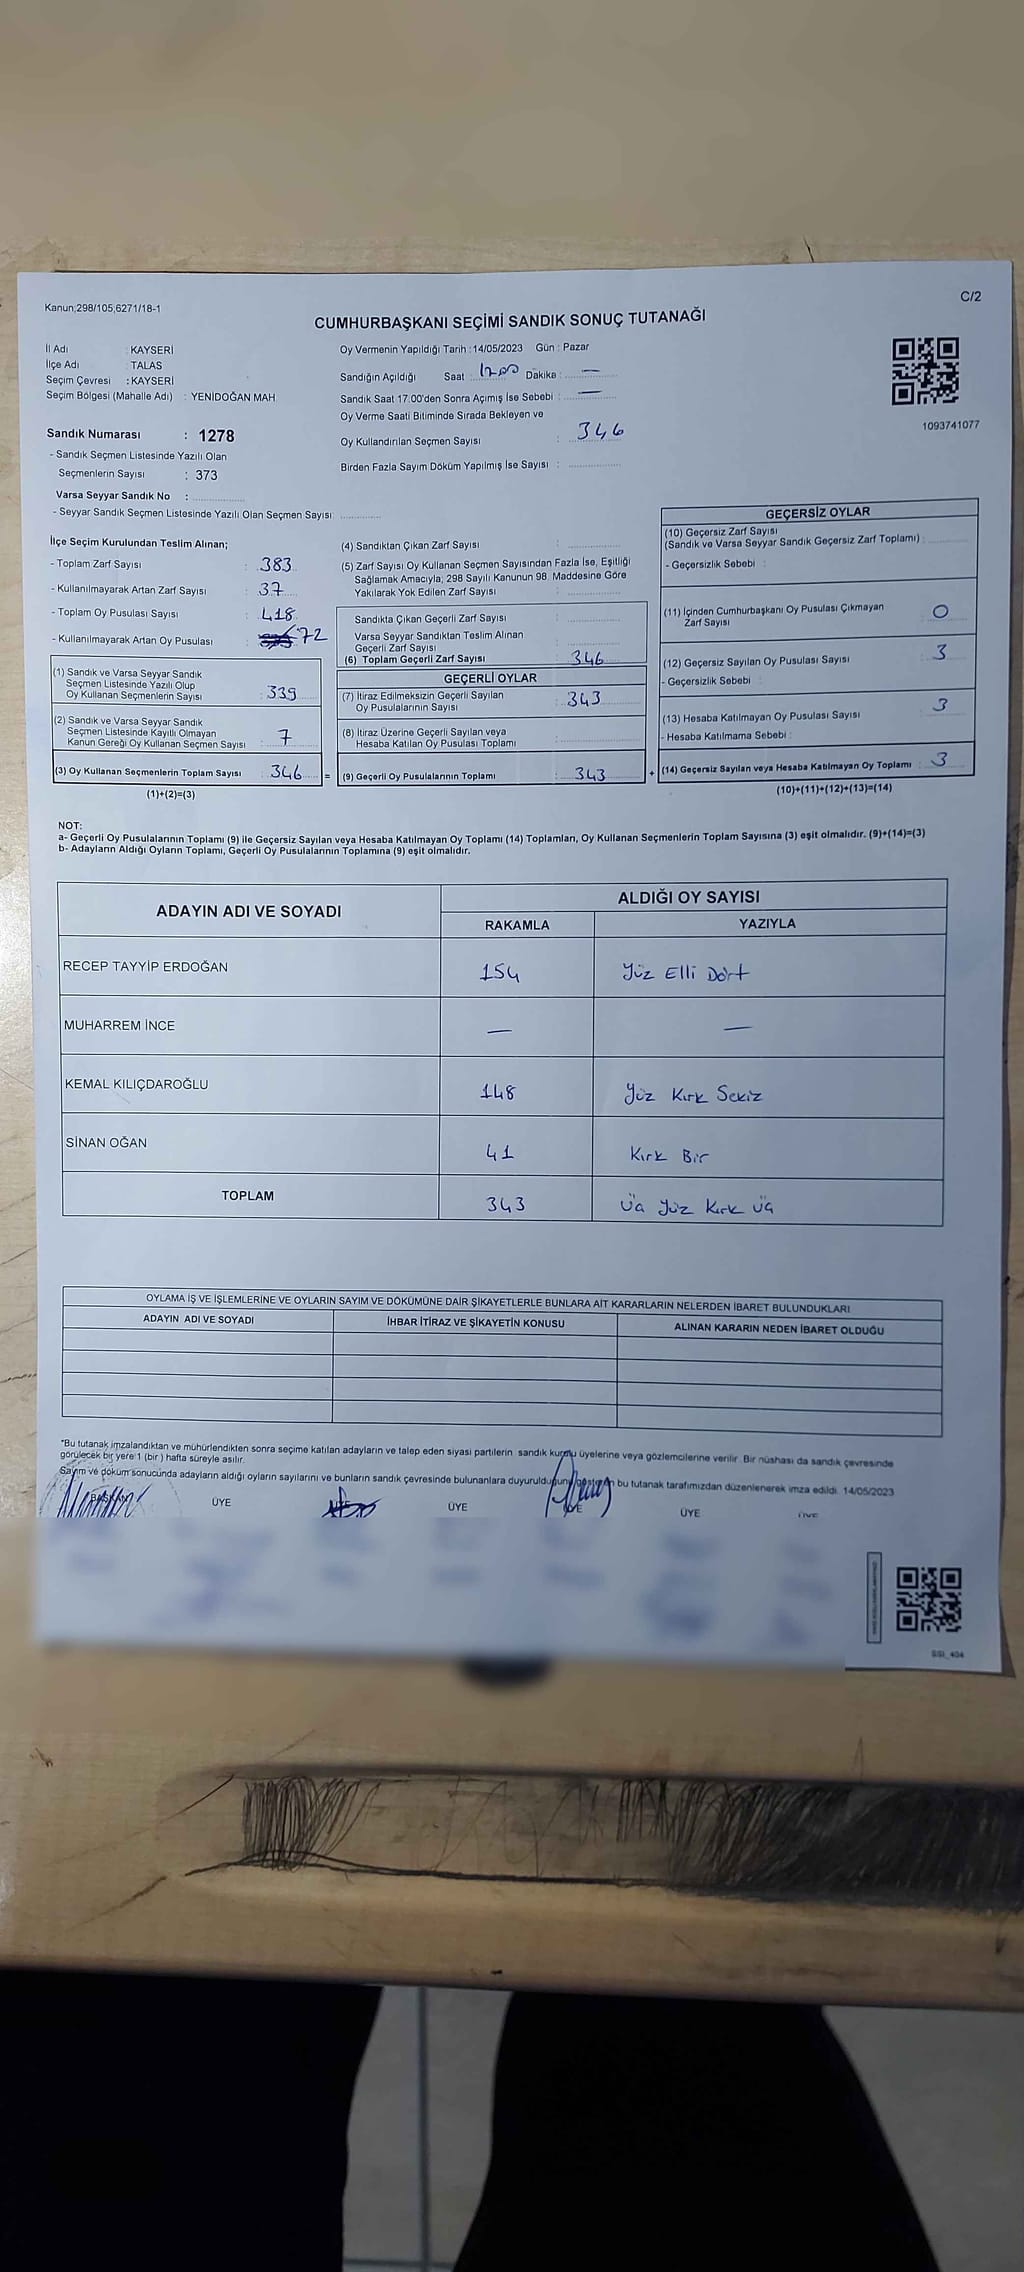 Kanun;298/105;6271/18-1
C/2
CUMHURBAŞKANI SEÇİMİ SANDIK SONUÇ TUTANAĞI
İl Adı : KAYSERİ
İlçe Adı : TALAS
Seçim Çevresi : KAYSERİ
Seçim Bölgesi (Mahalle Adı) : YENİDOĞAN MAH.
Sandık Numarası : 1278
- Sandık Seçmen Listesinde Yazılı Olan
Seçmenlerin Sayısı : 373
Varsa Seyyar Sandık No :
- Seyyar Sandık Seçmen Listesinde Yazılı Olan Seçmen Sayısı :
Oy Vermenin Yapıldığı Tarih : 14/05/2023 Gün : Pazar
Sandığın Açıldığı Saat : 1700 Dakika : —
Sandık Saat 17.00'den Sonra Açımış İse Sebebi : —
Oy Verme Saati Bitiminde Sırada Bekleyen ve
Oy Kullandırılan Seçmen Sayısı : 346
Birden Fazla Sayım Döküm Yapılmış İse Sayısı :
1093741077
İlçe Seçim Kurulundan Teslim Alınan;
- Toplam Zarf Sayısı : 383
- Kullanılmayarak Artan Zarf Sayısı : 37
- Toplam Oy Pusulası Sayısı : 418
- Kullanılmayarak Artan Oy Pusulası : 72
(1) Sandık ve Varsa Seyyar Sandık
Seçmen Listesinde Yazılı Olup
Oy Kullanan Seçmenlerin Sayısı : 339
(2) Sandık ve Varsa Seyyar Sandık
Seçmen Listesinde Kayıtlı Olmayan
Kanun Gereği Oy Kullanan Seçmen Sayısı : 7
(3) Oy Kullanan Seçmenlerin Toplam Sayısı : 346 =
(1)+(2)=(3)
(4) Sandıktan Çıkan Zarf Sayısı :
(5) Zarf Sayısı Oy Kullanan Seçmen Sayısından Fazla İse, Eşitliği
Sağlamak Amacıyla; 298 Sayılı Kanunun 98. Maddesine Göre
Yakılarak Yok Edilen Zarf Sayısı :
Sandıkta Çıkan Geçerli Zarf Sayısı :
Varsa Seyyar Sandıktan Teslim Alınan
Geçerli Zarf Sayısı :
(6) Toplam Geçerli Zarf Sayısı : 346
GEÇERLİ OYLAR
(7) İtiraz Edilmeksizin Geçerli Sayılan
Oy Pusulalarının Sayısı : 343
(8) İtiraz Üzerine Geçerli Sayılan veya
Hesaba Katılan Oy Pusulası Toplamı :
(9) Geçerli Oy Pusulalarının Toplamı : 343 +
GEÇERSİZ OYLAR
(10) Geçersiz Zarf Sayısı
(Sandık ve Varsa Seyyar Sandık Geçersiz Zarf Toplamı) :
- Geçersizlik Sebebi :
(11) İçinden Cumhurbaşkanı Oy Pusulası Çıkmayan
Zarf Sayısı : 0
(12) Geçersiz Sayılan Oy Pusulası Sayısı : 3
- Geçersizlik Sebebi :
(13) Hesaba Katılmayan Oy Pusulası Sayısı : 3
- Hesaba Katılmama Sebebi :
(14) Geçersiz Sayılan veya Hesaba Katılmayan Oy Toplamı : 3
(10)+(11)+(12)+(13)=(14)
NOT:
a- Geçerli Oy Pusulalarının Toplamı (9) ile Geçersiz Sayılan veya Hesaba Katılmayan Oy Toplamı (14) Toplamları, Oy Kullanan Seçmenlerin Toplam Sayısına (3) eşit olmalıdır. (9)+(14)=(3)
b- Adayların Aldığı Oyların Toplamı, Geçerli Oy Pusulalarının Toplamına (9) eşit olmalıdır.
ADAYIN ADI VE SOYADI ALDIĞI OY SAYISI
RAKAMLA YAZIYLA
RECEP TAYYİP ERDOĞAN 154 Yüz Elli Dört
MUHARREM İNCE — —
KEMAL KILIÇDAROĞLU 148 Yüz Kırk Sekiz
SİNAN OĞAN 41 Kırk Bir
TOPLAM 343 Üç Yüz Kırk Üç
OYLAMA İŞ VE İŞLEMLERİNE VE OYLARIN SAYIM VE DÖKÜMÜNE DAİR ŞİKAYETLERLE BUNLARA AİT KARARLARIN NELERDEN İBARET BULUNDUKLARI
ADAYIN ADI VE SOYADI İHBAR İTİRAZ VE ŞİKAYETİN KONUSU ALINAN KARARIN NEDEN İBARET OLDUĞU
*Bu tutanak imzalandıktan ve mühürlendikten sonra seçime katılan adayların ve talep eden siyasi partilerin sandık kurulu üyelerine veya gözlemcilerine verilir. Bir nüshası da sandık çevresinde
görülecek bir yere 1 (bir) hafta süreyle asılır.
Sayım ve döküm sonucunda adayların aldığı oyların sayılarını ve bunların sandık çevresinde bulunanlara duyurulduğunu gösteren bu tutanak tarafımızdan düzenlenerek imza edildi. 14/05/2023
BAŞKAN ÜYE ÜYE ÜYE ÜYE ÜYE ÜYE
SSI_404